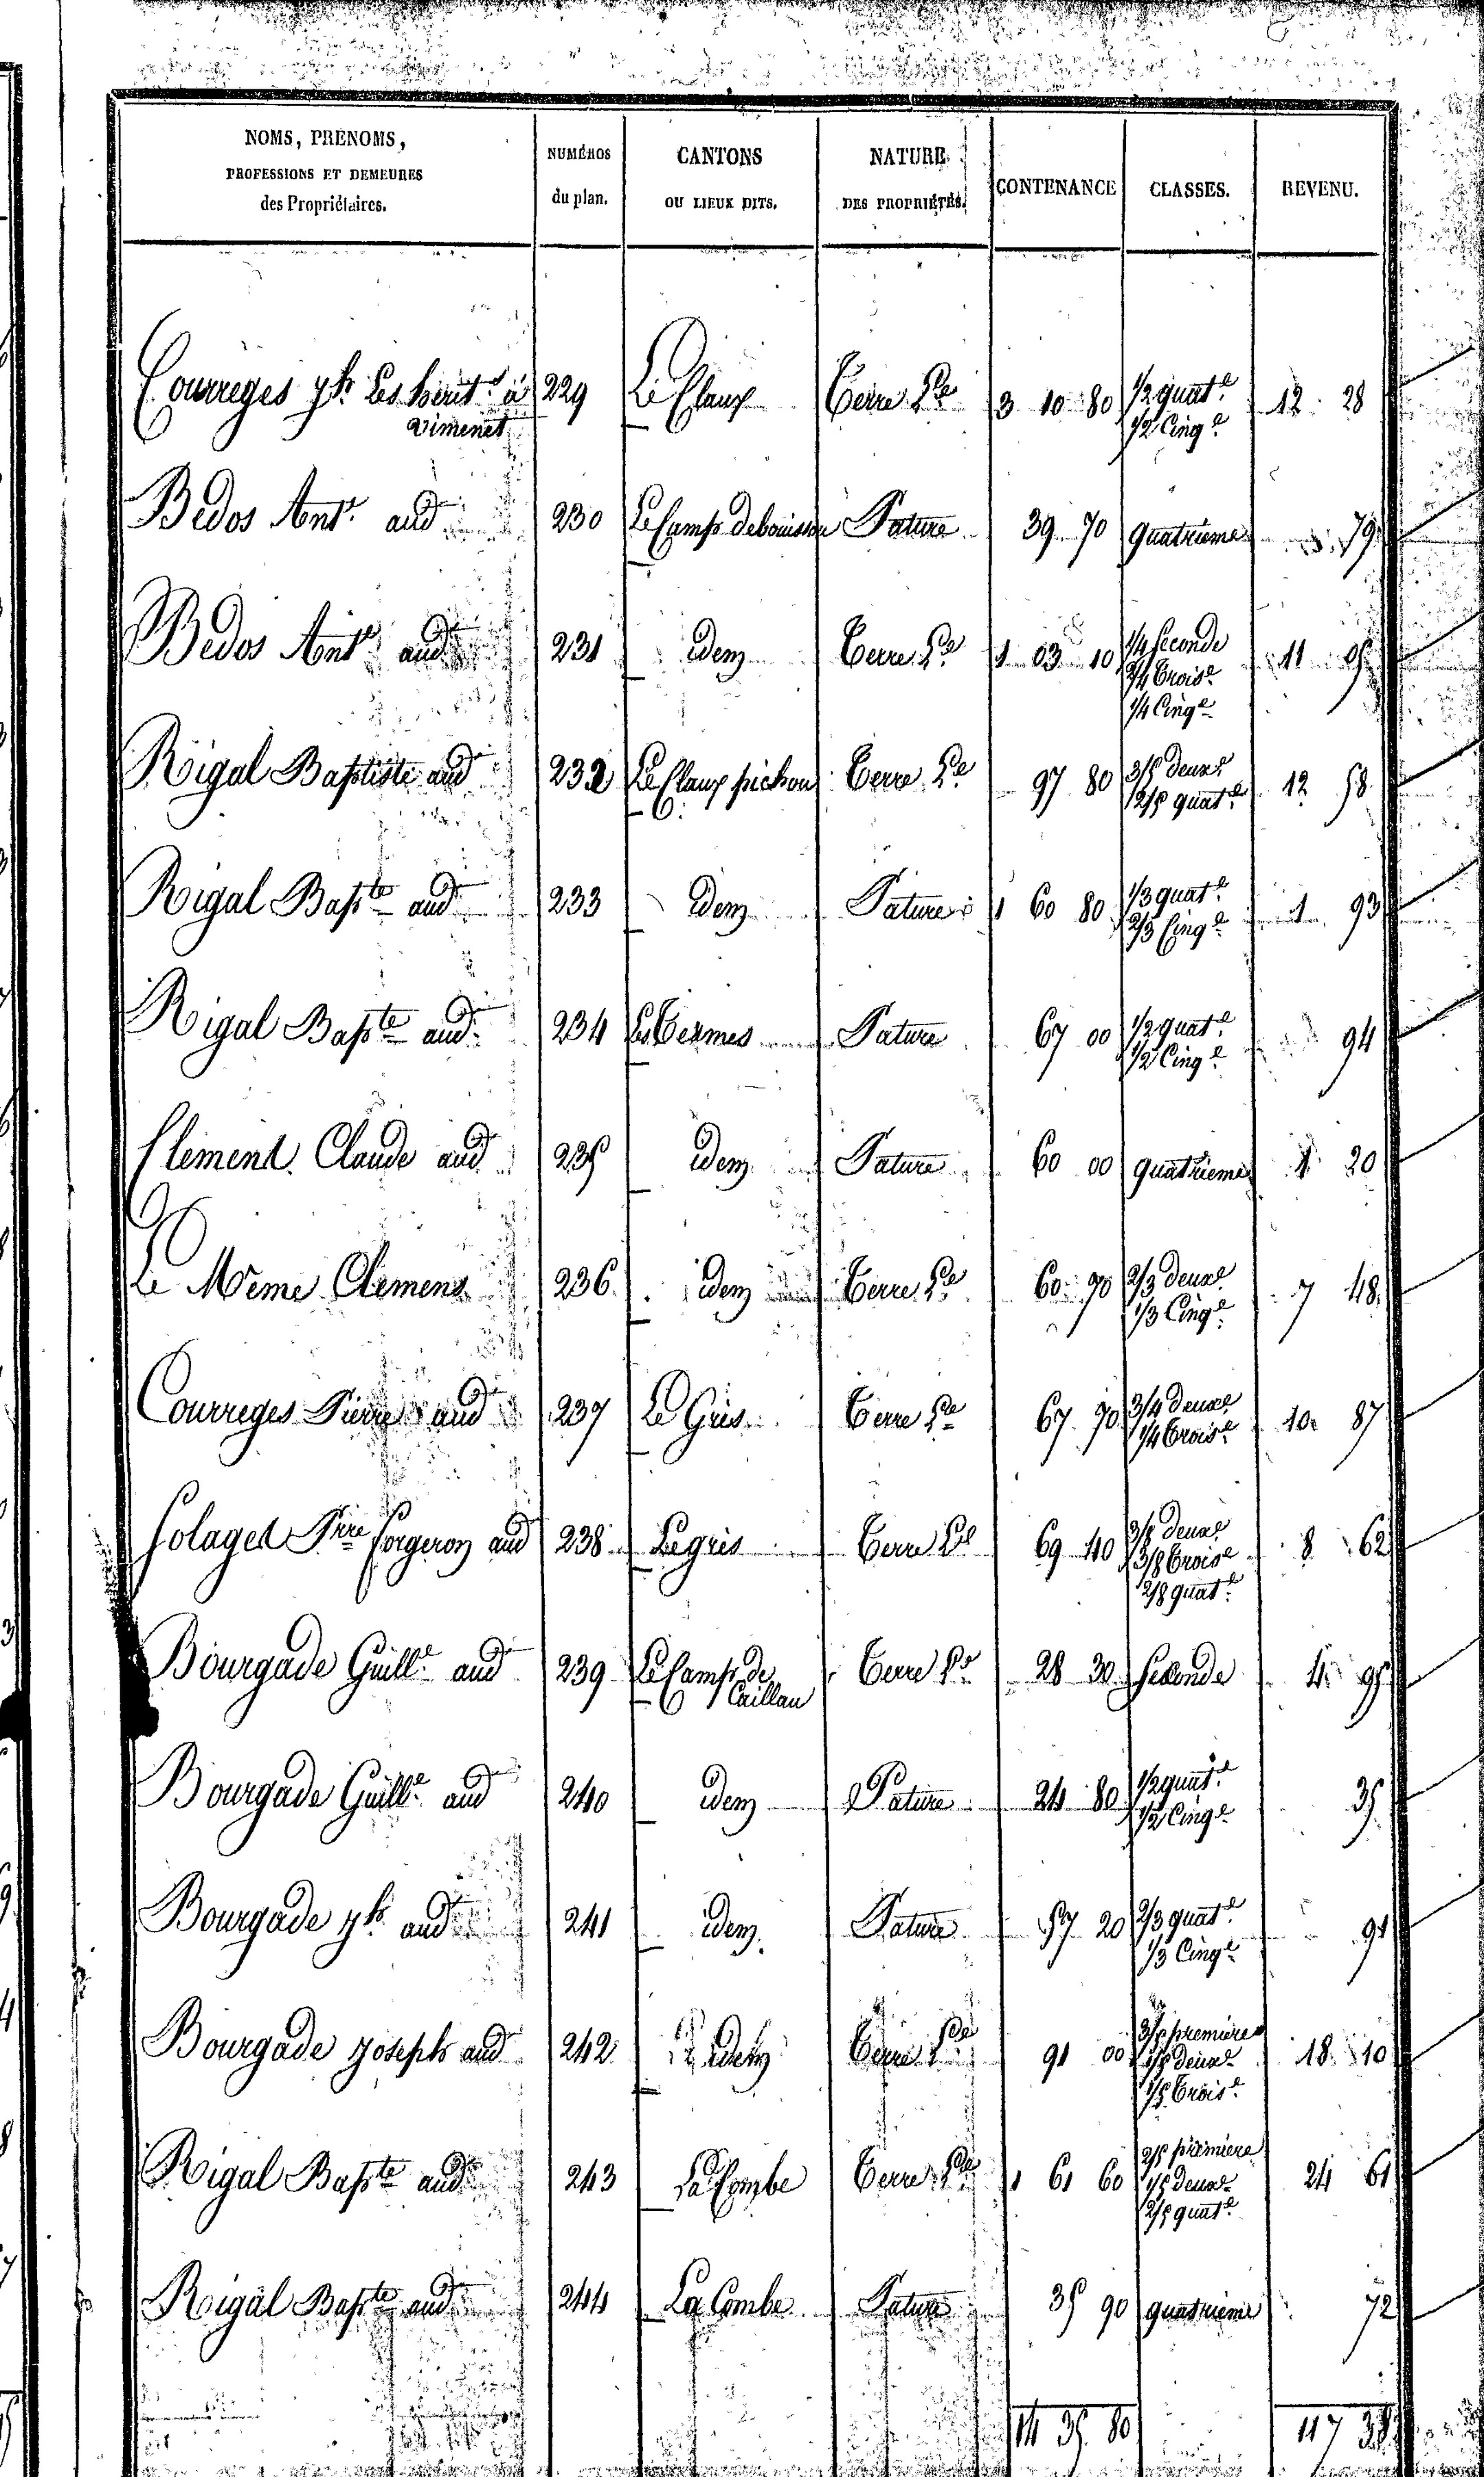 NOMS, PRENOMS,
PROFESSIONS ET DEMEURES
des Propriétaires.
NUMÉROS
du plan.
CANTONS
OU LIEUX DITS.
NATURE
DES PROPRIÉTÉS.
CONTENANCE
CLASSES.
REVENU.
Courreges Jh. Les herit.s à 229 Le Claux Terre L.de 3 10 80 1/2 quat.e 12 28
Vimenet 1/2 Cinq.e
Bedos Ant.e aud.t 230 Le Camp debouisson Pature 39 70 quatrieme 79
Bedos Ant.e aud.t 231 idem Terre L.de 1 03 10 1/4 Seconde 11 05
2/4 Trois.e
1/4 Cinq.e
Rigal Baptiste aud.t 232 Le Claux pichou Terre L.de 97 80 3/5 deux.e 12 58
2/5 quat.e
Rigal Bap.te aud.t 233 idem Pature 1 60 80 1/3 quat.e 1 93
2/3 Cinq.e
Rigal Bap.te aud.t 234 Les Termes Pature 67 00 1/2 quat.e 94
1/2 Cinq.e
Clement Claude aud.t 235 idem Pature 60 00 quatrieme 1 20
Le Même Clemens 236 idem Terre L.de 60 90 2/3 deux.e 7 48
1/3 Cinq.e
Courreges Pierre aud.t 237 Le Gres Terre L.de 67 90 3/4 deux.e 10 87
1/4 Trois.e
Solages P.rre forgeron aud.t 238 Le gres Terre L.de 69 40 3/8 deux.e 8 62
3/8 Trois.e
2/8 quat.e
Bourgade Guill.e aud.t 239 Le Camp de Terre L.de 28 30 Seconde 4 95
Caillau
Bourgade Guill.e aud.t 240 idem Pature 24 80 1/2 quat.e 35
1/2 Cinq.e
Bourgade Jh. aud.t 241 idem Pature 57 20 2/3 quat.e 91
1/3 Cinq.e
Bourgade Joseph aud.t 242 idem Terre L.de 91 00 3/5 premiere 18 10
1/5 deux.e
1/5 Trois.e
Rigal Bap.te aud.t 243 La Combe Terre L.de 1 61 60 2/5 premiere 24 61
1/5 deux.e
2/5 quat.e
Rigal Bap.te aud.t 244 La Combe Pature 35 90 quatrieme 72
14 35 80 117 38